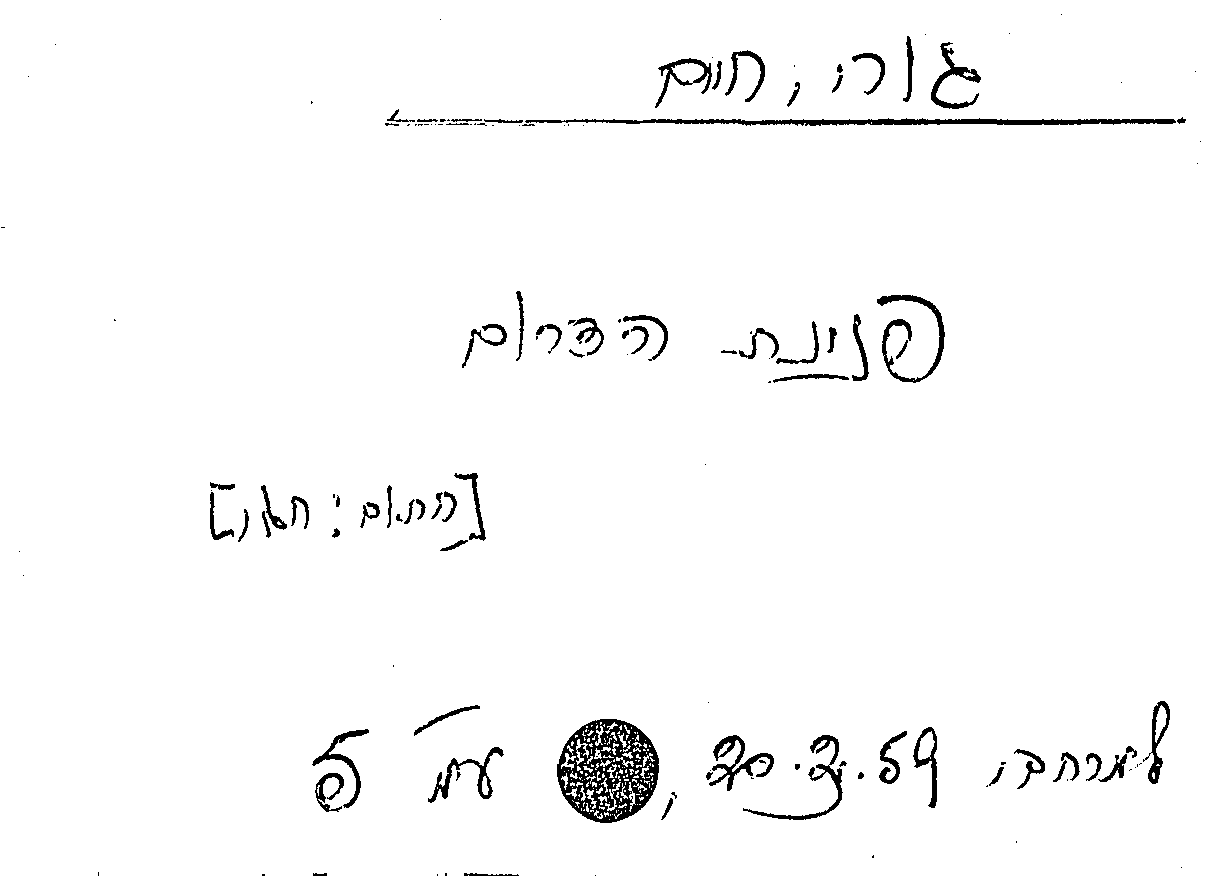 גורי, חיים
פנינת הדרום
[חתום: חגור]
למרחב, 20.2.59, עמ' 5